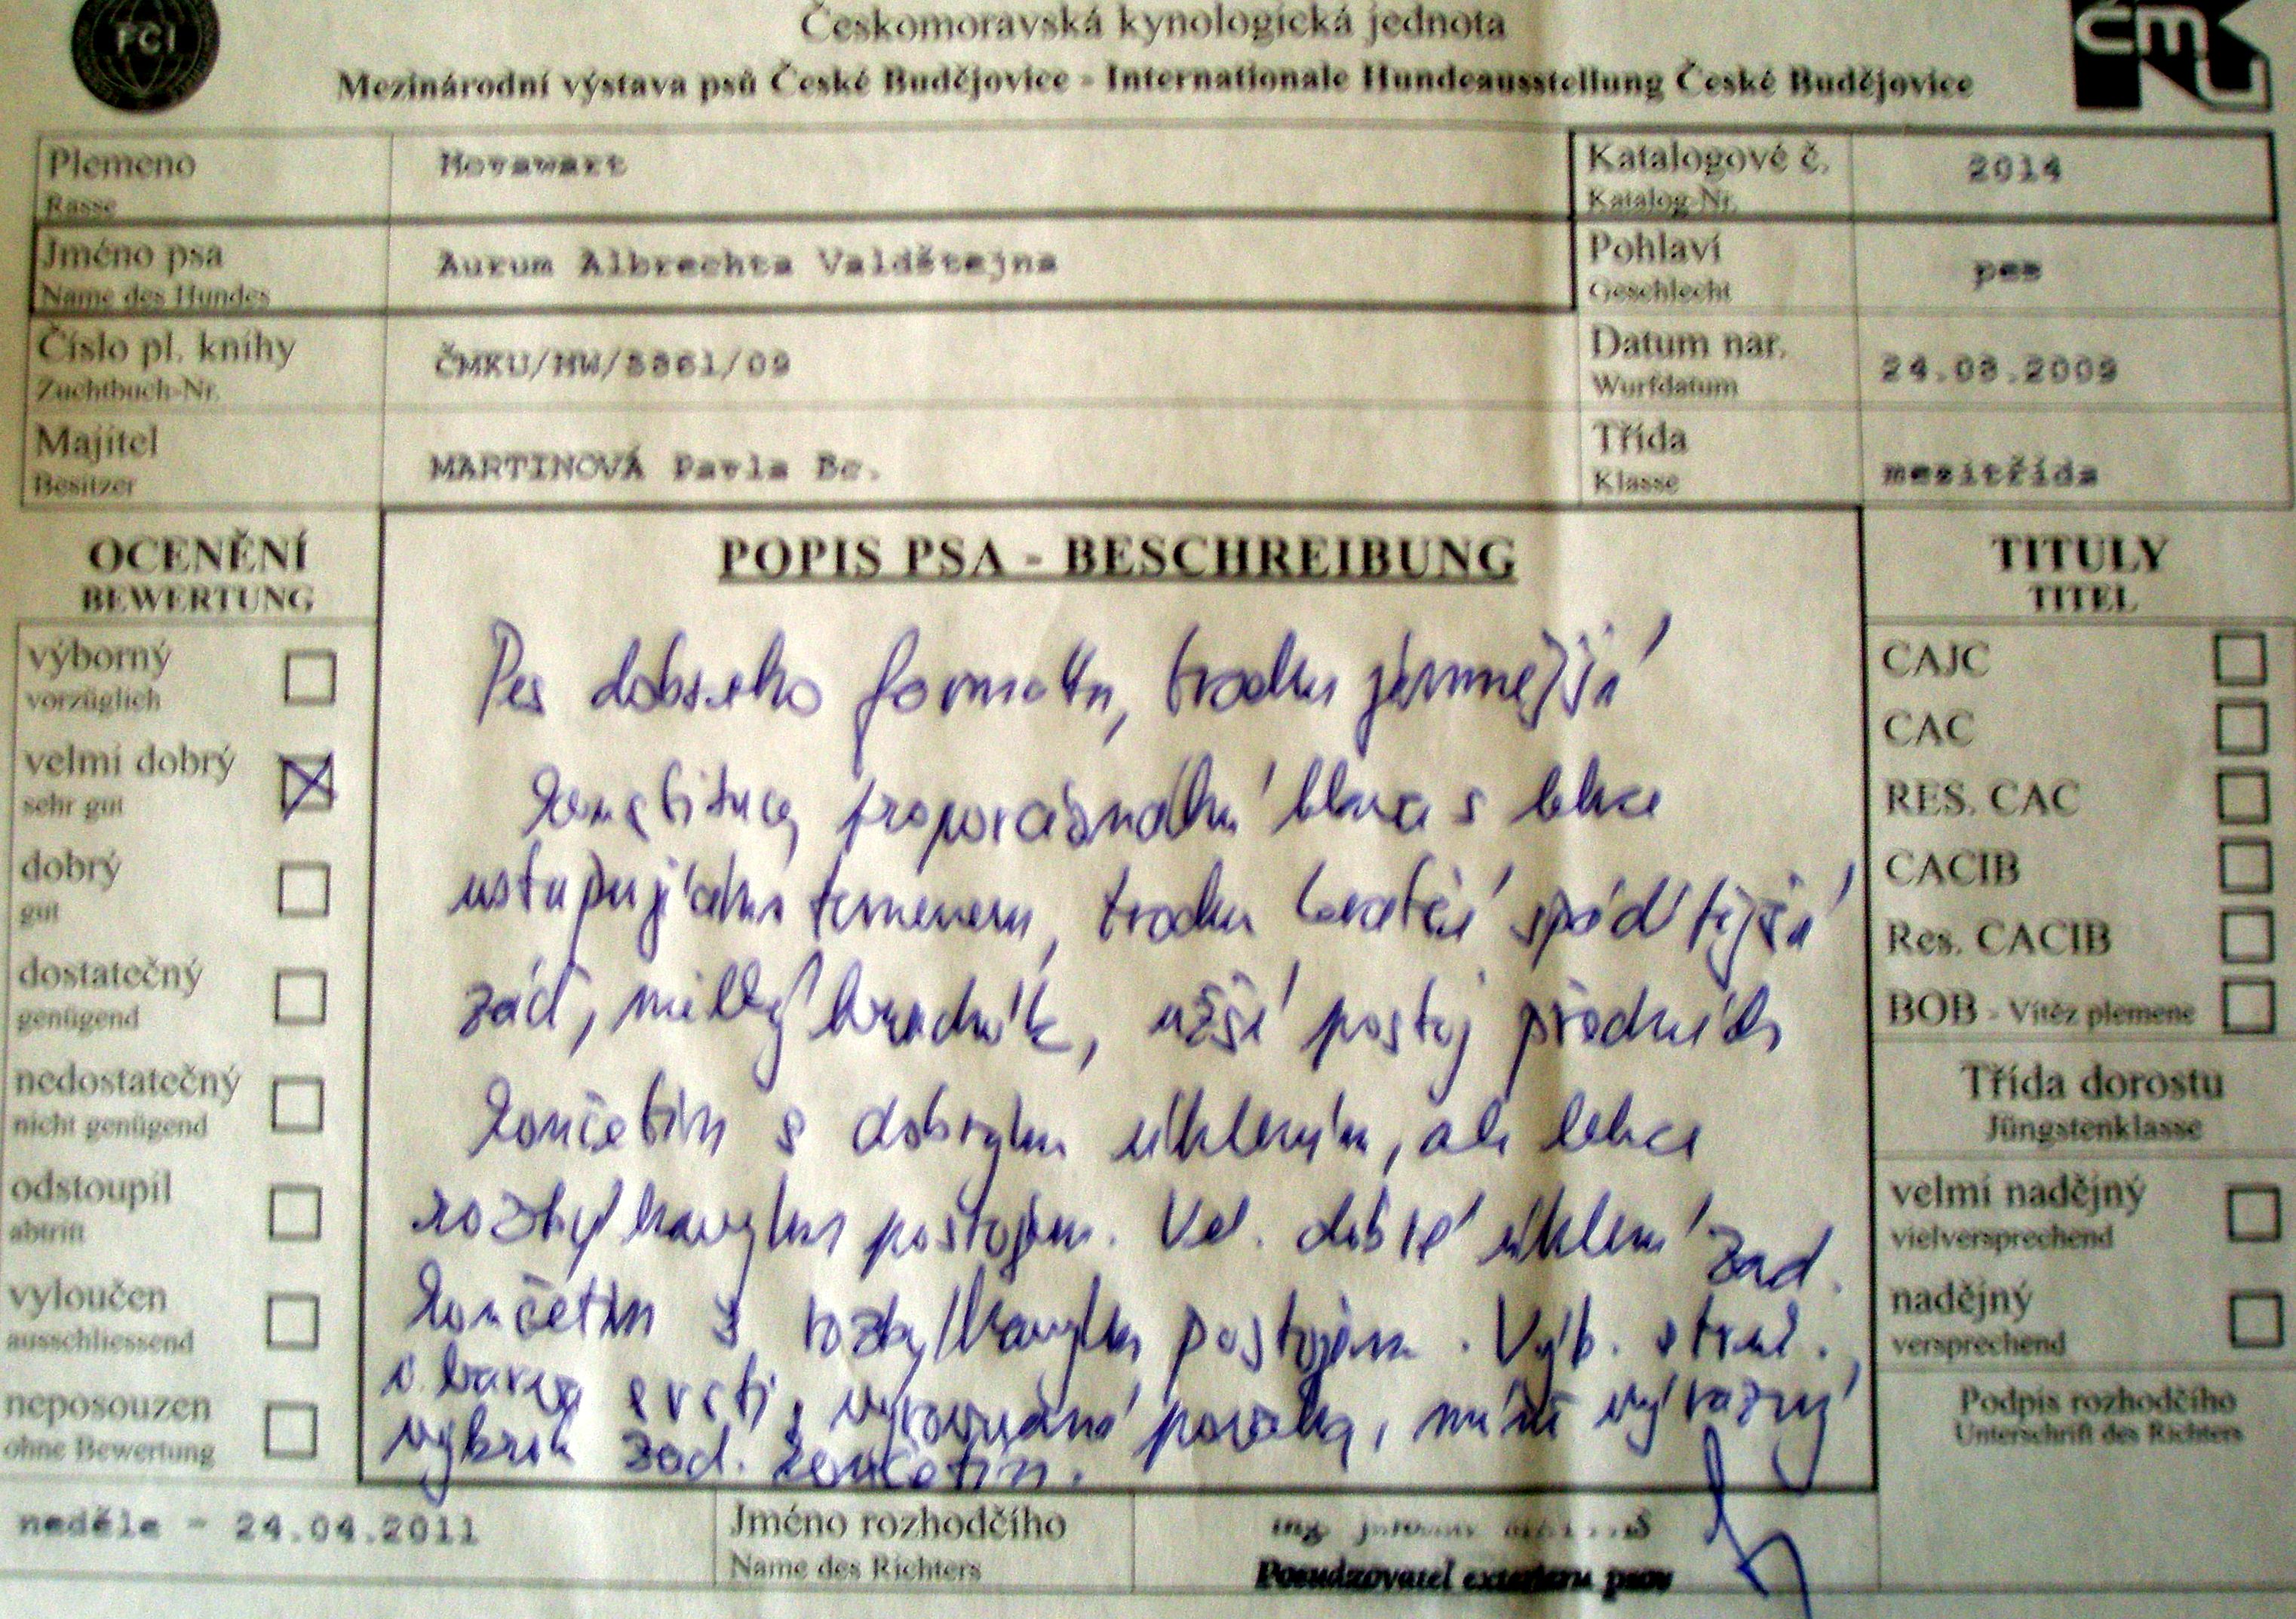 FCI
Českomoravská kynologická jednota
ČMKJ
Mezinárodní výstava psů České Budějovice - Internationale Hundeausstellung České Budějovice
Plemeno
Rasse
Hovawart
Katalogové č.
Katalog-Nr.
2014
Jméno psa
Name des Hundes
Aurum Albrechta Valdštejna
Pohlaví
Geschlecht
pes
Číslo pl. knihy
Zuchtbuch-Nr.
ČMKU/HW/
/09
Datum nar.
Wurfdatum
24.03.2009
Majitel
Besitzer
MARTINOVÁ Pavla Bc.
Třída
Klasse
mezitřída
OCENĚNÍ
BEWERTUNG
výborný
vorzüglich
velmi dobrý
sehr gut
dobrý
gut
dostatečný
genügend
nedostatečný
nicht genügend
odstoupil
abtritt
vyloučen
ausschliessend
neposouzen
ohne Bewertung
POPIS PSA - BESCHREIBUNG
Pes dobrého formátu, trochu jemnější
konstituce, proporcionální hlava s lehce
ustupujícím temenem, trochu kratší spád'tější
záď, mělký hrudník, užší postoj předních
končetin s dobrým úhlením, ale lehce
rozbíhavým postojem. Vel. dobré úhlení zad.
končetin s rozbíhavým postojem. Výb. strukt.
i barva srsti, vyrovnaná povaha, méně výrazný
výkrok zad. končetin.
TITULY
TITEL
CAJC
CAC
RES. CAC
CACIB
Res. CACIB
BOB - Vítěz plemene
Třída dorostu
Jüngstenklasse
velmi nadějný
vielversprechend
nadějný
versprechend
Podpis rozhodčího
Unterschrift des Richters
neděle - 24.04.2011
Jméno rozhodčího
Name des Richters
Ing.
Posudzovatel exteriéru psov